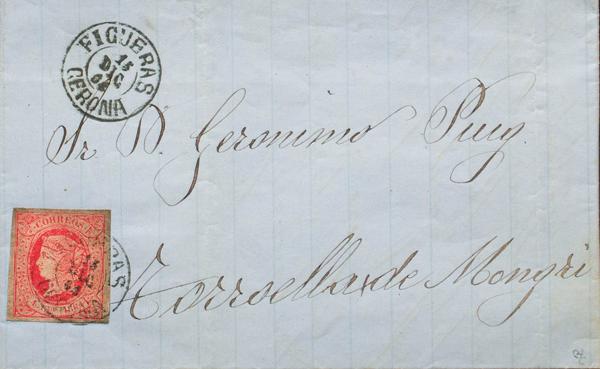 FIGUERAS
15
DIC
64
GERONA
Sr. D. Geronimo Puig.
CORREOS
Torroella de Mongri